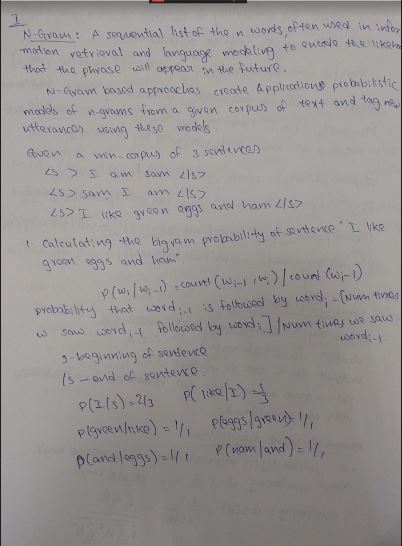 I
N-Gram : A sequential list of the n words, often used in infor
mation retrieval and language modeling to encode the likeho
that the phrase will appear in the future.
N-Gram based approaches create Applications probabilistic
models of n-grams from a given corpus of text and tag new
utterances using these models.
Given a mini-corpus of 3 sentences
<s > I am sam </s>
<s> sam I am </s>
<s> I like green eggs and ham </s>
1 calculating the bigram probability of sentence " I like
green eggs and ham"
P(wi/wi-1) = count (wi-1, wi) / count (wi-1)
probability that wordi-1 is followed by wordi = [Num times
w saw wordi-1 followed by wordi] / Num times we saw
wordi-1.
s-beginning of sentence
/s - end of sentence.
P(I/s) = 2/3 P(like/I) = 1/3
P(green/like) = 1/1 P(eggs/green) = 1/1
P(and/eggs) = 1/1 P(ham/and) = 1/1